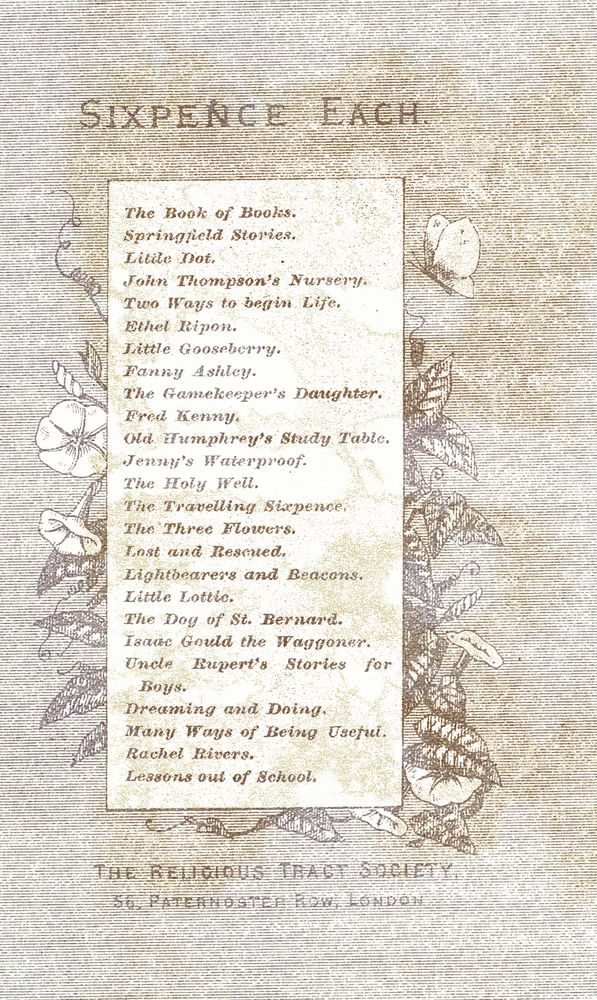 SIXPENCE EACH.
The Book of Books.
Springfield Stories.
Little Dot.
John Thompson's Nursery.
Two Ways to begin Life.
Ethel Ripon.
Little Gooseberry.
Fanny Ashley.
The Gamekeeper's Daughter.
Fred Kenny.
Old Humphrey's Study Table.
Jenny's Waterproof.
The Holy Well.
The Travelling Sixpence.
The Three Flowers.
Lost and Rescued.
Lightbearers and Beacons.
Little Lottie.
The Dog of St. Bernard.
Isaac Gould the Waggoner.
Uncle Rupert's Stories for
Boys.
Dreaming and Doing.
Many Ways of Being Useful.
Rachel Rivers.
Lessons out of School.
THE RELIGIOUS TRACT SOCIETY,
56, PATERNOSTER ROW, LONDON